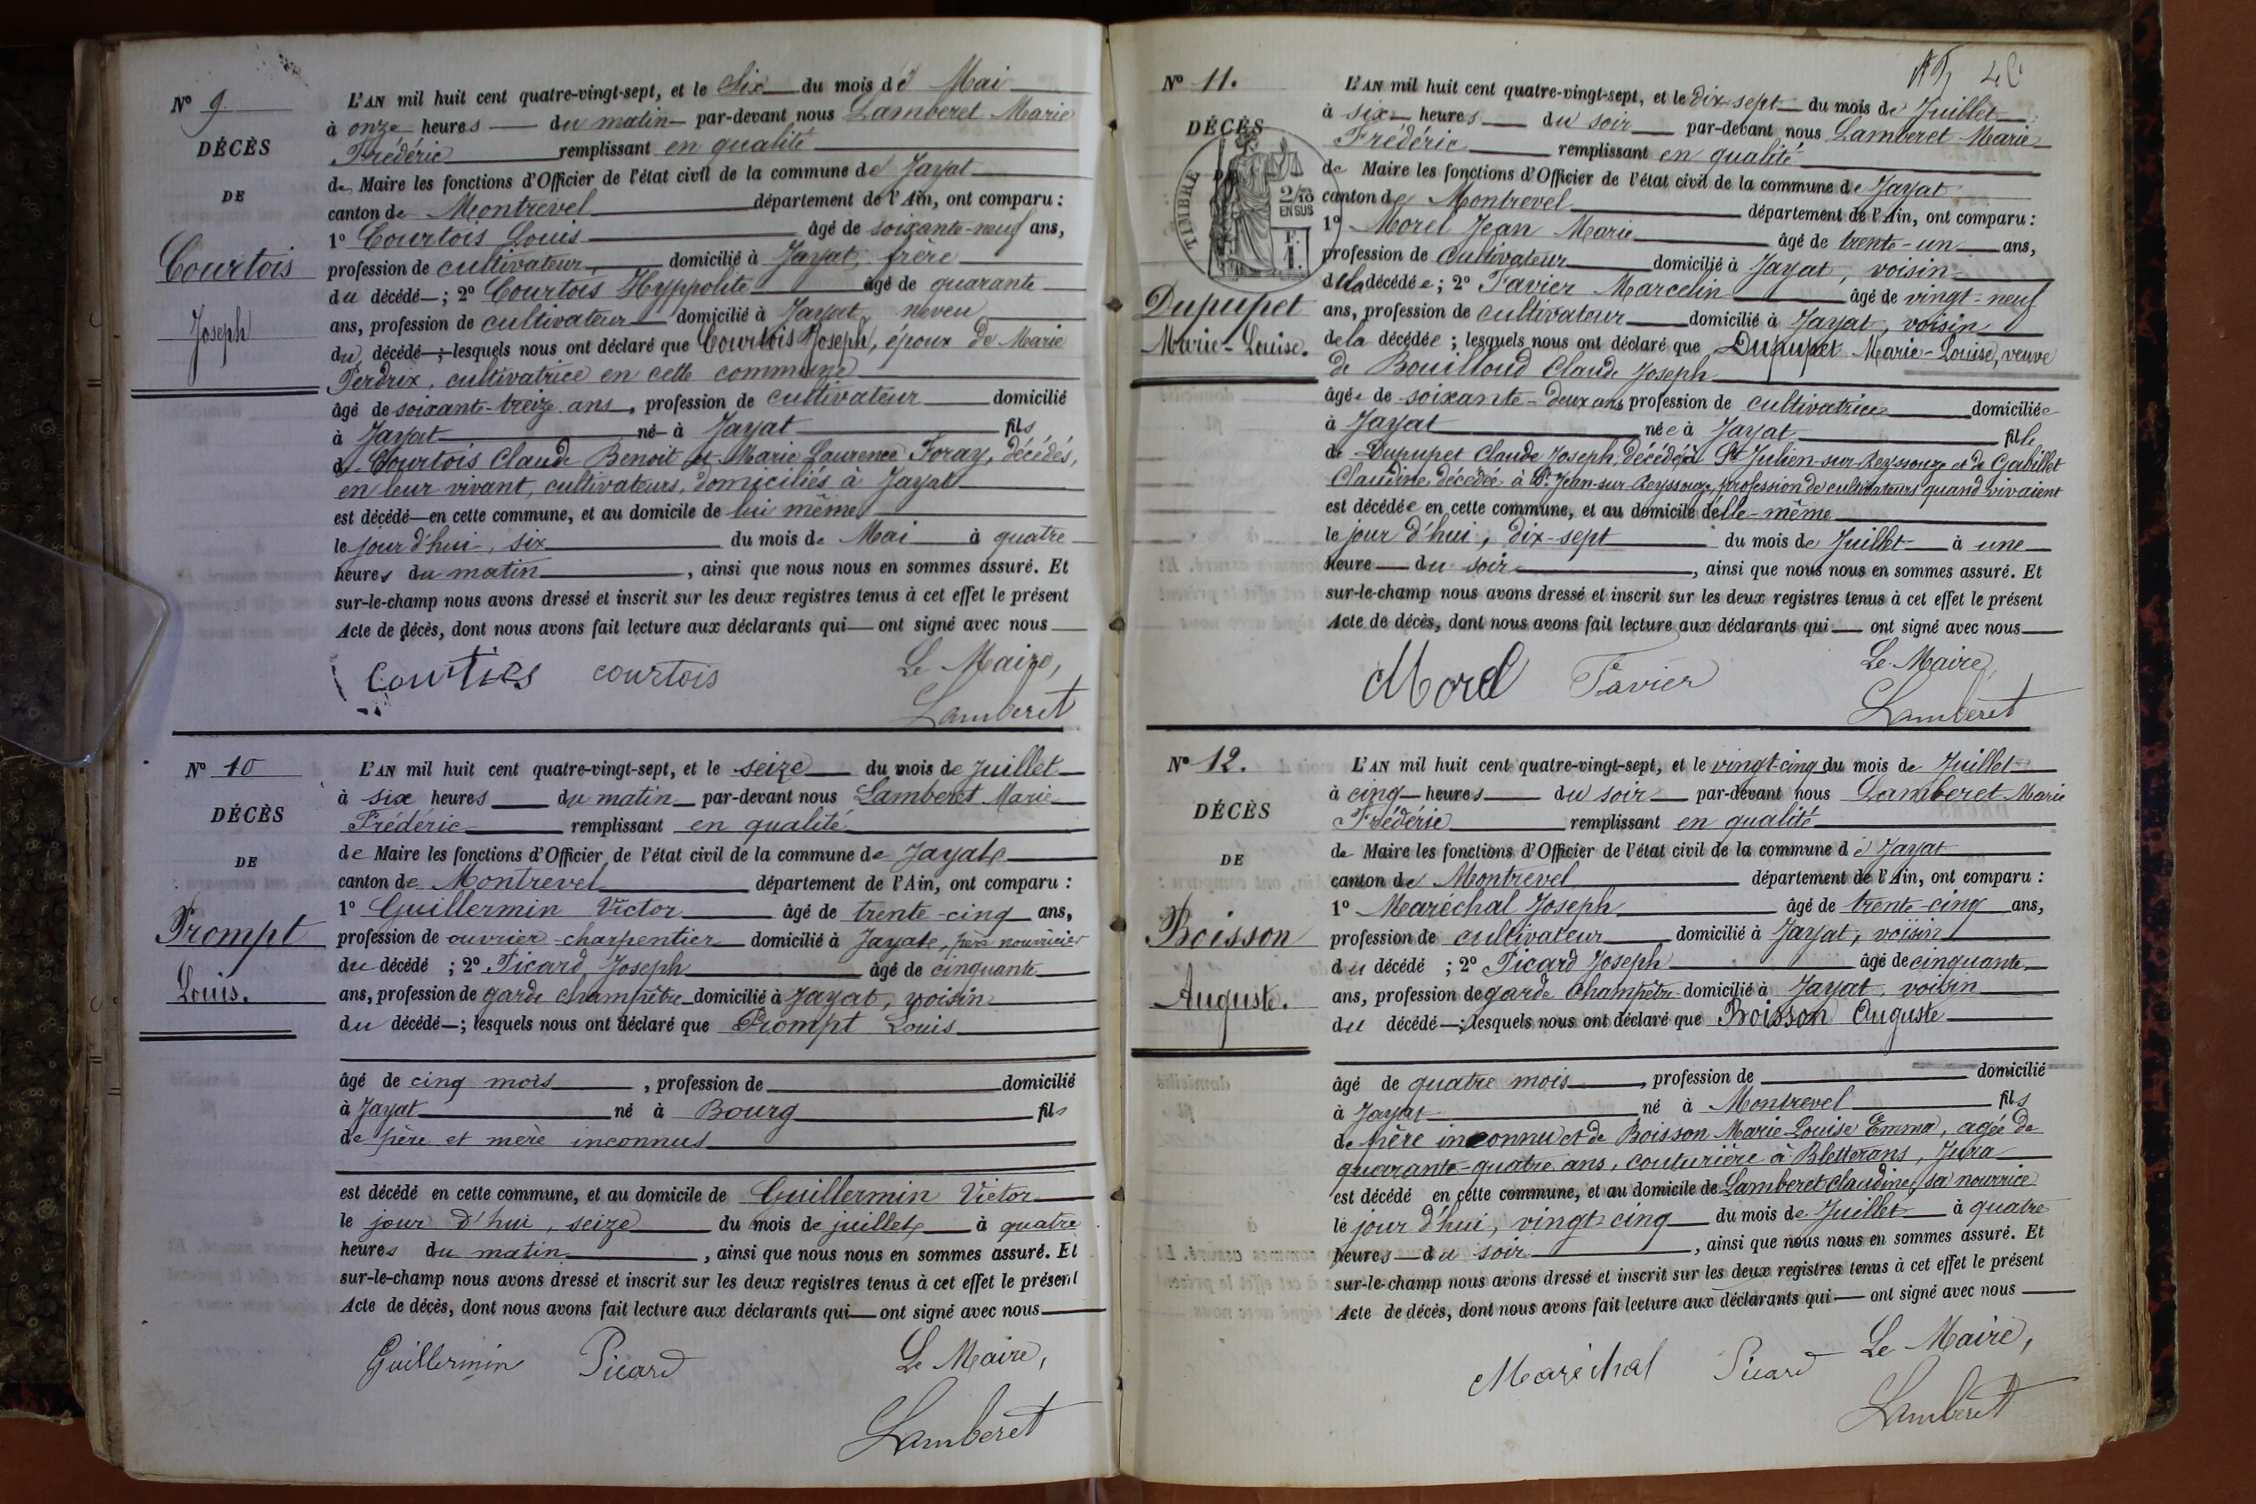 N° 9.
DÉCÈS
DE
Courtois
Joseph
L'AN mil huit cent quatre-vingt-sept, et le six du mois de Mai
à onze heures du matin par-devant nous Lamberet Marie
Frédéric remplissant en qualité
de Maire les fonctions d'Officier de l'état civil de la commune de Jayat
canton de Montrevel département de l'Ain, ont comparu :
1° Courtois Louis âgé de soixante-neuf ans,
profession de cultivateur, domicilié à Jayat, frère
du décédé ; 2° Courtois Hyppolite âgé de quarante
ans, profession de cultivateur domicilié à Jayat, neveu
du décédé ; lesquels nous ont déclaré que Courtois Joseph, époux de Marie
Perdrix, cultivatrice en cette commune
âgé de soixante-treize ans, profession de cultivateur domicilié
à Jayat né à Jayat fils
de Courtois Claude Benoit et Marie Laurence Foray, décédés,
en leur vivant, cultivateurs, domiciliés à Jayat
est décédé en cette commune, et au domicile de lui même
le jour d'hui, six du mois de Mai à quatre
heures du matin, ainsi que nous nous en sommes assuré. Et
sur-le-champ nous avons dressé et inscrit sur les deux registres tenus à cet effet le présent
Acte de décès, dont nous avons fait lecture aux déclarants qui ont signé avec nous
Courties courtois Le Maire,
Lamberet
N° 10
DÉCÈS
DE
Prompt
Louis.
L'AN mil huit cent quatre-vingt-sept, et le seize du mois de Juillet
à six heures du matin par-devant nous Lamberet Marie
Frédéric remplissant en qualité
de Maire les fonctions d'Officier de l'état civil de la commune de Jayat
canton de Montrevel département de l'Ain, ont comparu :
1° Guillermin Victor âgé de trente-cinq ans,
profession de ouvrier-charpentier domicilié à Jayat, père nourricier
du décédé ; 2° Picard Joseph âgé de cinquante
ans, profession de garde champêtre domicilié à Jayat, voisin
du décédé ; lesquels nous ont déclaré que Prompt Louis
âgé de cinq mois, profession de domicilié
à Jayat né à Bourg fils
de père et mère inconnus
est décédé en cette commune, et au domicile de Guillermin Victor
le jour d'hui, seize du mois de juillet à quatre
heures du matin, ainsi que nous nous en sommes assuré. Et
sur-le-champ nous avons dressé et inscrit sur les deux registres tenus à cet effet le présent
Acte de décès, dont nous avons fait lecture aux déclarants qui ont signé avec nous
Guillermin Picard Le Maire,
Lamberet
N° 11.
DÉCÈS
TIMBRE
2/10
EN SUS
Dupupet
Marie-Louise.
L'AN mil huit cent quatre-vingt-sept, et le dix-sept du mois de Juillet
à six heures du soir par-devant nous Lamberet Marie
Frédéric remplissant en qualité
de Maire les fonctions d'Officier de l'état civil de la commune de Jayat
canton de Montrevel département de l'Ain, ont comparu :
1° Morel Jean Marie âgé de trente-un ans,
profession de cultivateur domicilié à Jayat, voisin
de la décédée ; 2° Favier Marcelin âgé de vingt-neuf
ans, profession de cultivateur domicilié à Jayat, voisin
de la décédée ; lesquels nous ont déclaré que Dupupet Marie-Louise, veuve
de Bouilloud Claude Joseph
âgée de soixante-deux ans profession de cultivatrice domiciliée
à Jayat née à Jayat fille
de Dupupet Claude Joseph, décédé à St Julien-sur-Reyssouze et de Gabillet
Claudine, décédée à St Jean-sur-Reyssouze, profession de cultivateurs quand vivaient
est décédée en cette commune, et au domicile d'elle-même
le jour d'hui, dix-sept du mois de Juillet à une
heure du soir, ainsi que nous nous en sommes assuré. Et
sur-le-champ nous avons dressé et inscrit sur les deux registres tenus à cet effet le présent
Acte de décès, dont nous avons fait lecture aux déclarants qui ont signé avec nous
Morel Favier Le Maire,
Lamberet
N° 12.
DÉCÈS
DE
Boisson
Auguste.
L'AN mil huit cent quatre-vingt-sept, et le vingt-cinq du mois de Juillet
à cinq heures du soir par-devant nous Lamberet Marie
Frédéric remplissant en qualité
de Maire les fonctions d'Officier de l'état civil de la commune de Jayat
canton de Montrevel département de l'Ain, ont comparu :
1° Maréchal Joseph âgé de trente-cinq ans,
profession de cultivateur domicilié à Jayat, voisin
du décédé ; 2° Picard Joseph âgé de cinquante
ans, profession de garde champêtre domicilié à Jayat, voisin
du décédé ; lesquels nous ont déclaré que Boisson Auguste
âgé de quatre mois, profession de domicilié
à Jayat né à Montrevel fils
de père inconnu et de Boisson Marie Louise Emma, agée de
quarante-quatre ans, couturière à Bletterans, Jura
est décédé en cette commune, et au domicile de Lamberet Claudine, sa nourrice
le jour d'hui, vingt-cinq du mois de Juillet à quatre
heures du soir, ainsi que nous nous en sommes assuré. Et
sur-le-champ nous avons dressé et inscrit sur les deux registres tenus à cet effet le présent
Acte de décès, dont nous avons fait lecture aux déclarants qui ont signé avec nous
Maréchal Picard Le Maire,
Lamberet